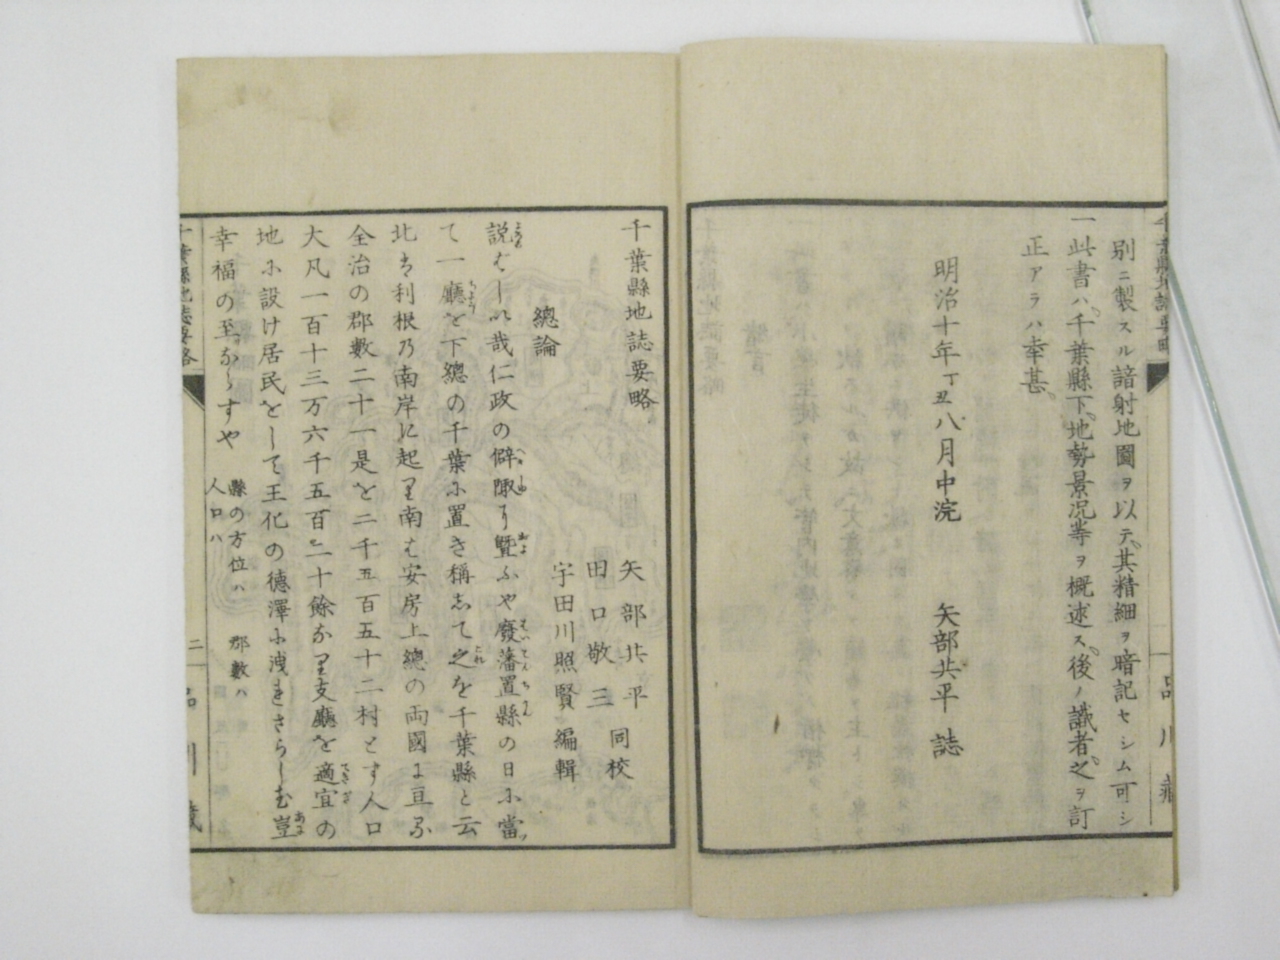 別ニ製スル諳射地圖ヲ以テ其精細ヲ暗記セシム可シ
一此書ハ千葉縣下地勢景况等ヲ概述ス後ノ識者之ヲ訂
正アラハ幸甚
明治十年丁丑八月中浣
矢部共平誌
千葉縣地誌要略
矢部共平
田口敬三 同校
宇田川照賢編輯
總論
哉仁政の僻陬り曁ふや廢藩置縣の日小當
て一廳を下總の千葉小置き稱志て之を千葉縣と云
北は利根乃南岸に起り南は安房上總の両國に亘る
全治の郡數二十一是を二千五百五十二村とす人口
大凡一百十三万六千五百二十餘なり支廳を適宜の
地小設け居民をして王化の德澤小洩さらしむ豈
幸福の至ならすや
縣の方位ハ
郡數ハ
人口ハ
千葉縣地誌要略
二